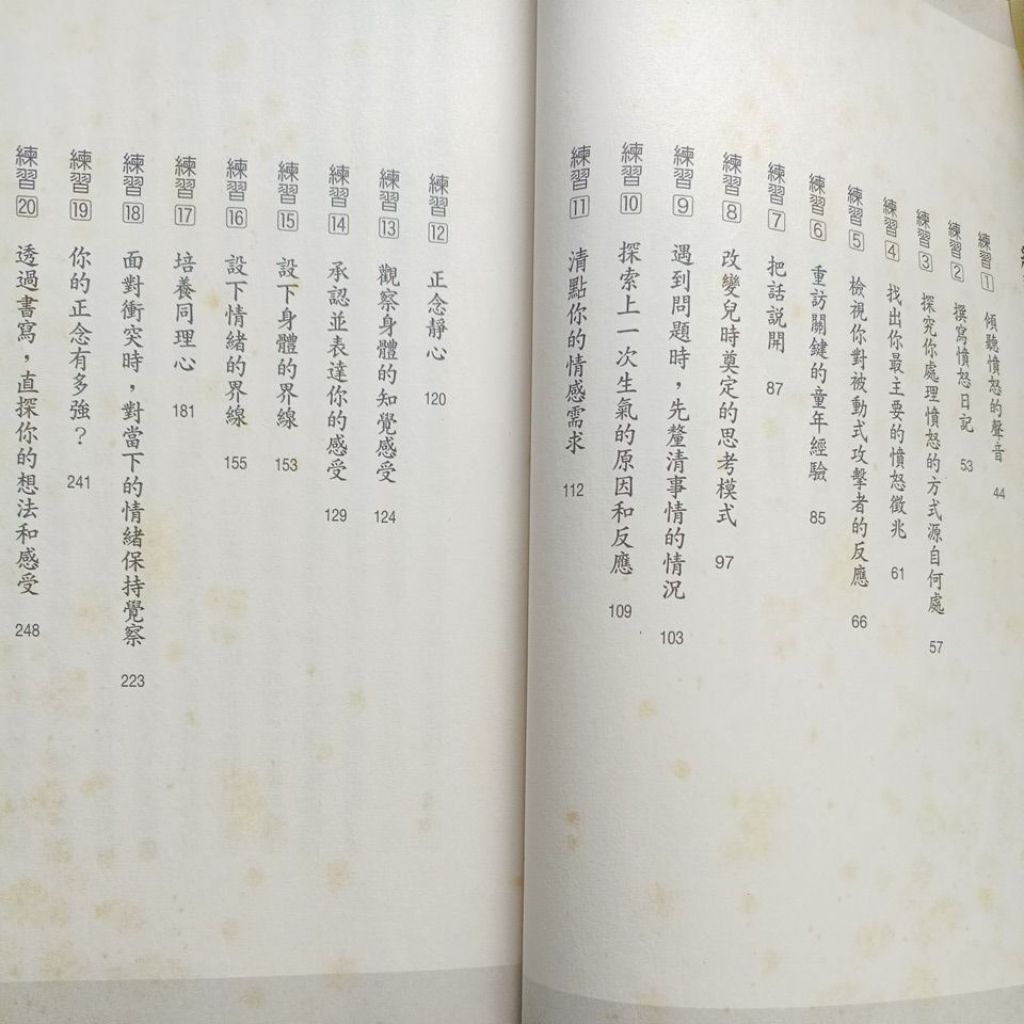 練習1 傾聽憤怒的聲音 44
練習2 撰寫憤怒日記 53
練習3 探究你處理憤怒的方式源自何處 57
練習4 找出你最主要的憤怒徵兆 61
練習5 檢視你對被動式攻擊者的反應 66
練習6 重訪關鍵的童年經驗 85
練習7 把話說開 87
練習8 改變兒時奠定的思考模式 97
練習9 遇到問題時，先釐清事情的情況 103
練習10 探索上一次生氣的原因和反應 109
練習11 清點你的情感需求 112
練習12 正念靜心 120
練習13 觀察身體的知覺感受 124
練習14 承認並表達你的感受 129
練習15 設下身體的界線 153
練習16 設下情緒的界線 155
練習17 培養同理心 181
練習18 面對衝突時，對當下的情緒保持覺察 223
練習19 你的正念有多強？ 241
練習20 透過書寫，直探你的想法和感受 248